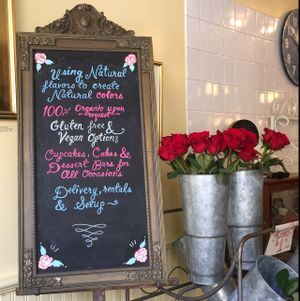 Using Natural
flavors to create
Natural colors
100% Organic upon
request
Gluten free &
Vegan Options
Cupcakes, Cakes &
Dessert Bars for
All Occasions
Delivery, rentals
& Setup